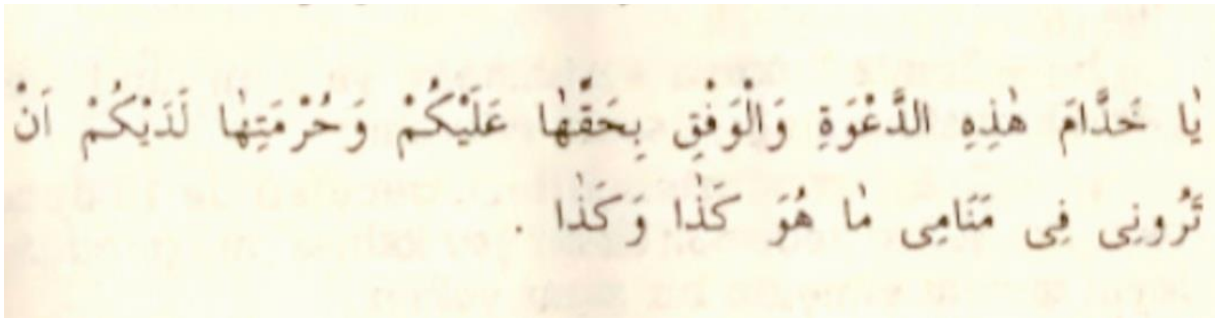 يٰا خَدَّامَ هٰذِهِ الدَّعْوَةِ وَالْوَفْقِ بِحَقِّهٰا عَلَيْكُمْ وَحُرْمَتِهٰا لَدَيْكُمْ اَنْ
تَرُونِى فِى مَنَامِى مٰا هُوَ كَذٰا وَكَذٰا .